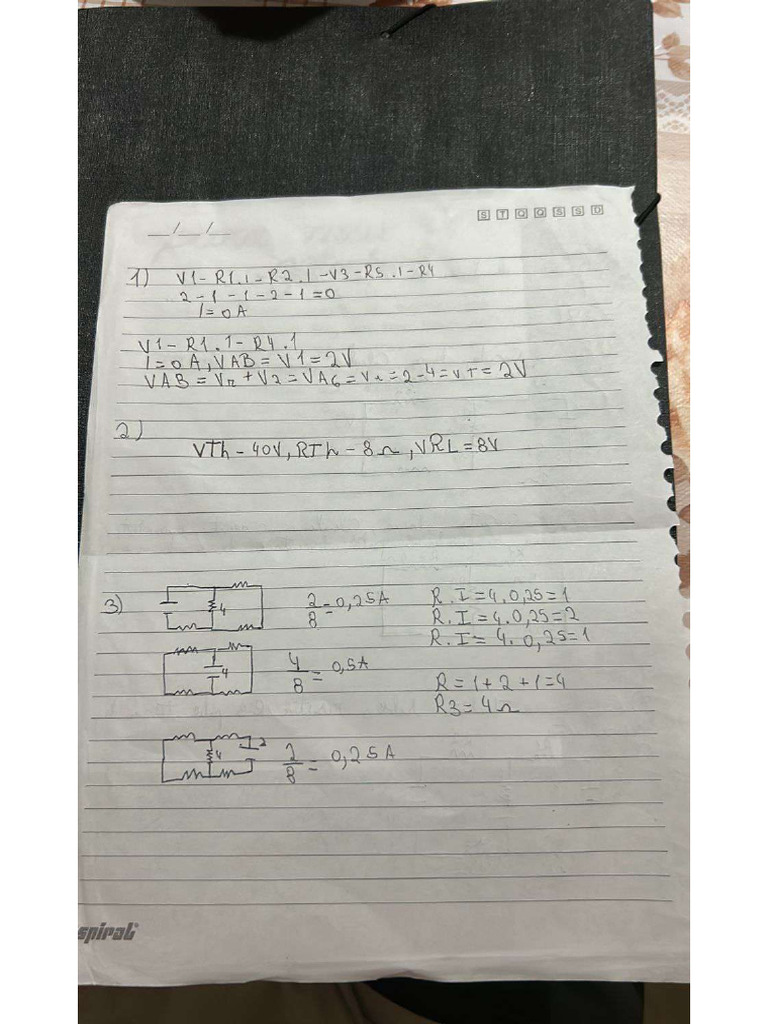 S T Q Q S S D
__/__/__
1) V1-R1.i-R2.1-V3-R5.1-R4
2-1-1-2-1=0
1=0A
V1-R1.1-R4.1
1=0A, VAB=V1=2V
2)
VTh-40V, RTh-8Ω, VRL=8V
3) 4 2/8=0,25A R.I=4.0,25=1
R.I=4.0,25=2
R.I=4.0,25=1
4 4/8=0,5A
R=1+2+1=4
R3=4Ω
4 2 2/8=0,25A
spiral